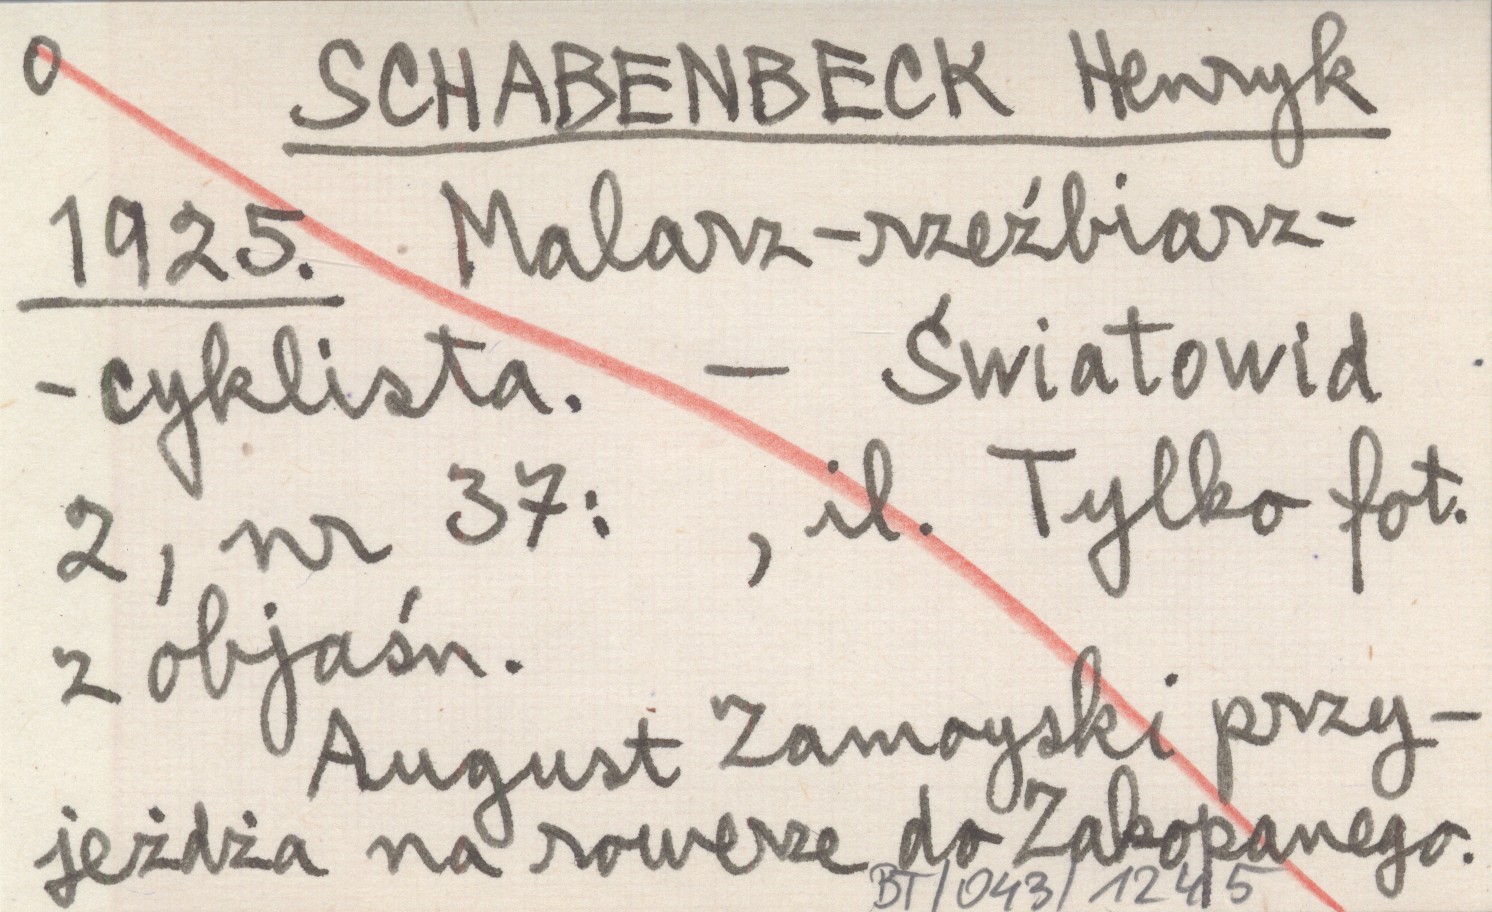 0 SCHABENBECK Henryk
1925. Malarz-rzeźbiarz-
-cyklista. — Światowid
2, nr 37: , il. Tylko fot.
z objaśn.
August Zamoyski przy-
jeżdża na rowerze do Zakopanego.
BT/043/1245